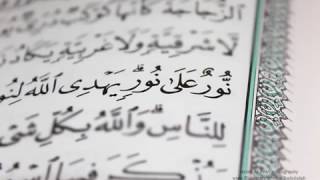 ٱلزُّجَاجَةُ كَأَنَّهَا كَوْكَبٌ دُرِّىٌّ
لَّا شَرْقِيَّةٍ وَلَا غَرْبِيَّةٍ يَكَادُ
نُّورٌ عَلَىٰ نُورٍ ۗ يَهْدِى ٱللَّهُ لِنُورِ
لِلنَّاسِ ۗ وَٱللَّهُ بِكُلِّ شَىْ